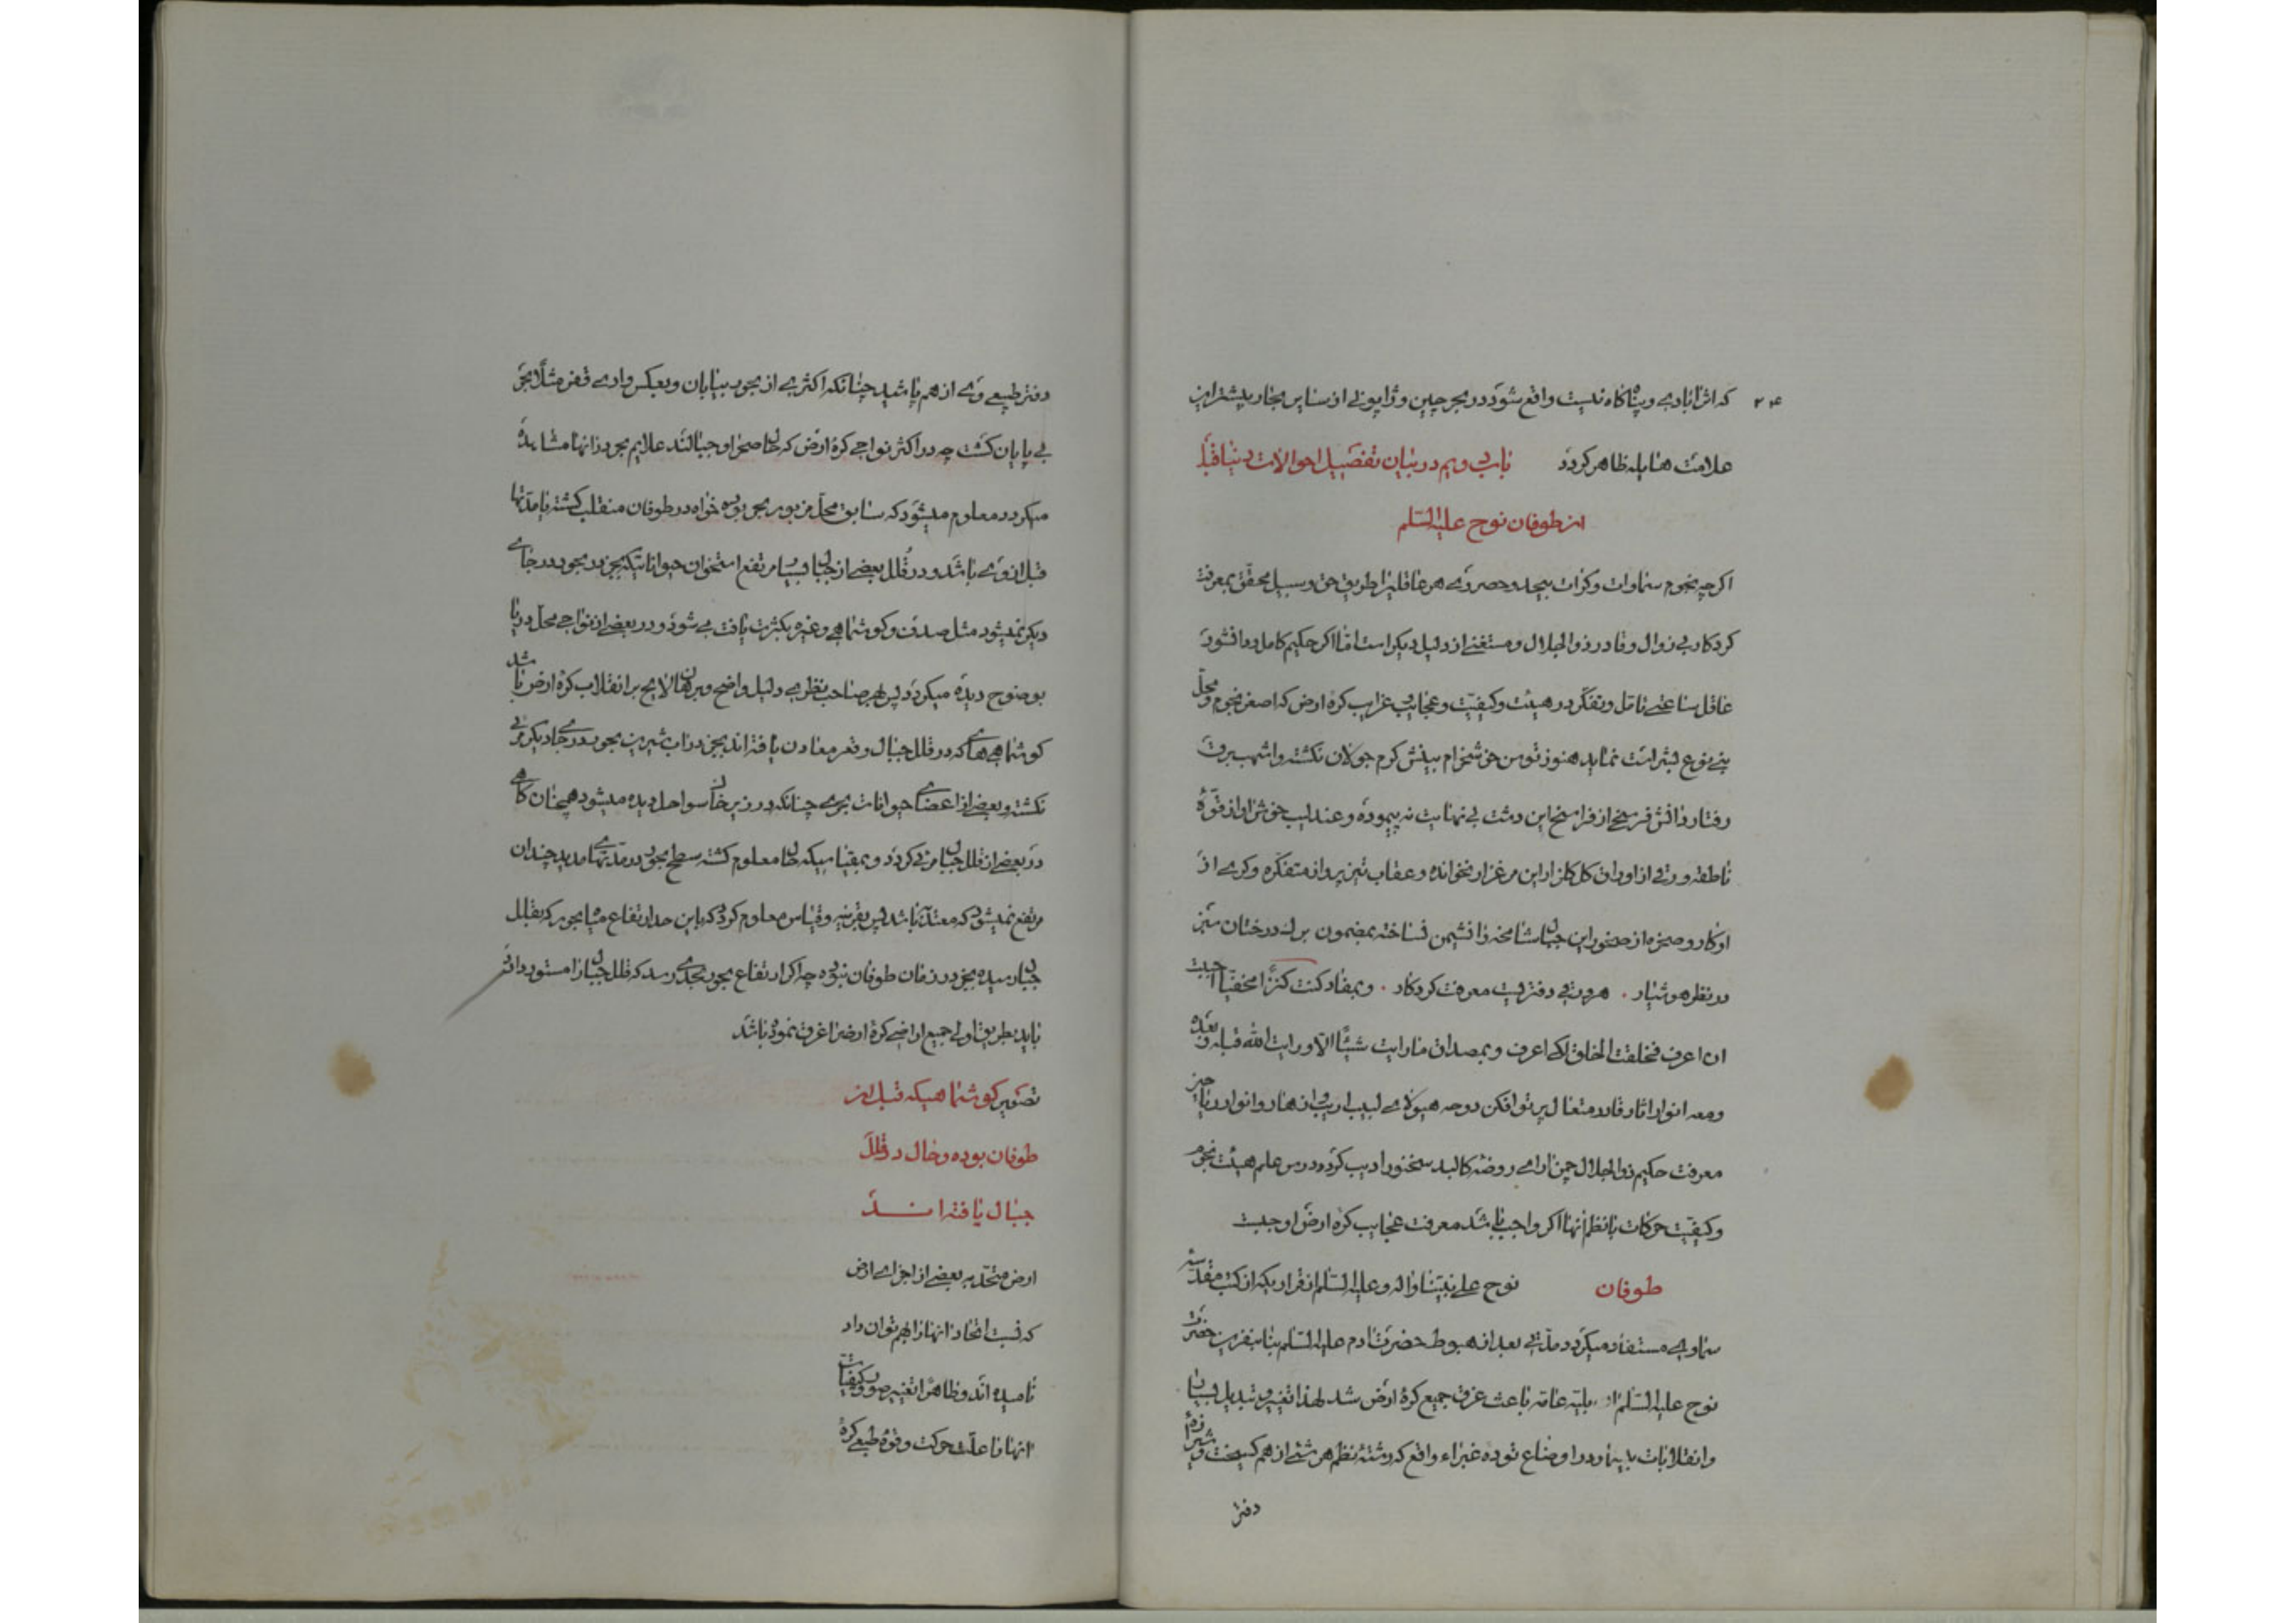 ۲۴
که اثر ابادی و پناگاه نیست واقع شود در بحر چین و ژاپونی از سایر بحار بیشتر این
علامت هایله ظاهر کردد باب دویم در بیان تفصیل احوالات دنیا قبل
از طوفان نوح علیه السلم
اکر چه نجوم سماوات و کرات بیحد و حصر وی هر عاقلیرا طریق حق و سبیل محقق بمعرفت
کردکار بی زوال و قادر ذو الجلال و مستغنی از دلیل دیکر است اما اکر حکیم کامل و دانشور
عاقل ساعتی تامل و تفکر در هیئت و کیفیت و عجایب غرایب کره ارض که اصغر نجوم و محل
بنی نوع بشر است نماید هنوز توسن خوشخرام بینش کرم جولان نکشته و اشهب برق
رفتار دانش فرسخی از فراسخ این دشت بی نهایت نه پیموده و عندلیب خوش اواز قوه
ناطقه ورقی از اوراق کل کلزار این مرغزار نخوانده و عقاب تیز پرواز متفکره وکری از
اوکار و صخره از صخور این جبال شامخه را نشیمن نساخته بمضمون برک درختان سبز
در نظر هوشیار . هر ورقی دفتریست معرفت کردکار . و بمفاد کنت کنزا مخفیا احببت
ان اعرف فخلقت الخلق لکی اعرف و بمصداق ما رایت شیئا الا و رایت الله قبله و بعده
و معه انوار اثار قادر متعال پرتو افکن
معرفت حکیم ذو الجلال چمن ارای روضه کالبد سخنور ادیب کردد درس علم هیئت نجوم
و کیفیت حرکات با نظم انها اکر واجب باشد معرفت عجایب کره ارض اوجبست
طوفان نوح علی نبینا و اله و علیه السلم از قراریکه از کتب مقدسه
سماوی مستفاد میکردد مدتی بعد از هبوط حضرت ادم علیه السلم بنا بنفرین حضرت
نوح علیه السلم بلیه عامه باعث غرق جمیع کره ارض شد لهذا تغییر و تبدیل بسیار
و انقلابات بیشمار در اوضاع توده غبراء واقع که رشته نظم هر شئی از هم کسیخت و شیرازه
دفتر
دفتر طبیعی وی از هم پاشید چنانکه اکثری از بحور بیابان و بعکس وادی قفر مثلا بحر
بی پایان کشت چه در اکثر نواحی کره ارض که حال صحرا و جبالند علایم بحور در انها مشاهده
میکردد معلوم میشود که سابق محل مزبور بحر بوده خواه در طوفان منقلب کشته یا مدتها
قبل از وی باشد و در قلل بعضی از جبال بسیار مرتفع استخوان حیواناتیکه بجز در بحور در جای
دیکر نمیشود مثل صدف و کوشماهی و غیره بکثرت یافت می شود و در بعضی از نواحی محل دریا
بوضوح دیده میکردد پس بهر صاحب نظری دلیل واضح و برهان لایح بر انقلاب کره ارض باشد
کوشماهی هائی که در قلل جبال و قعر معادن یافته اند بجز در اب شیرین بحور در جای دیکر مرئی
نکشته و بعضی از اعضای حیوانات بحری چنانکه در زیر خاک سواحل دیده میشود همچنان کاهی
در بعضی از قلل جبال مرئی کردد و یقینا میکه حال معلوم کشته سطح بحور در مدتهای مدید چندان
مرتفع نمیشود که معتد به باشد پس بقرینه و قیاس معلوم کردد که باین حد ارتفاع میاه بحور که بقلل
جبال رسیده بجز در زمان طوفان نبوده چه اکر ارتفاع بحور بحدی رسد که قلل جبال را مستور دارد
باید بطریق اولی جمیع اراضی کره ارض را غرق نموده باشد
تصویر کوشماهیکه قبل از
طوفان بوده و حال در قلل
جبال یافته اند
ارض متحد به بعضی از اجزای ارض
که نسبت اتحاد انها را بهم توان داد
نامیده اند و ظاهرا تغییر صور و کیفیات
انها با علت حرکت و قوه طبیعی کره